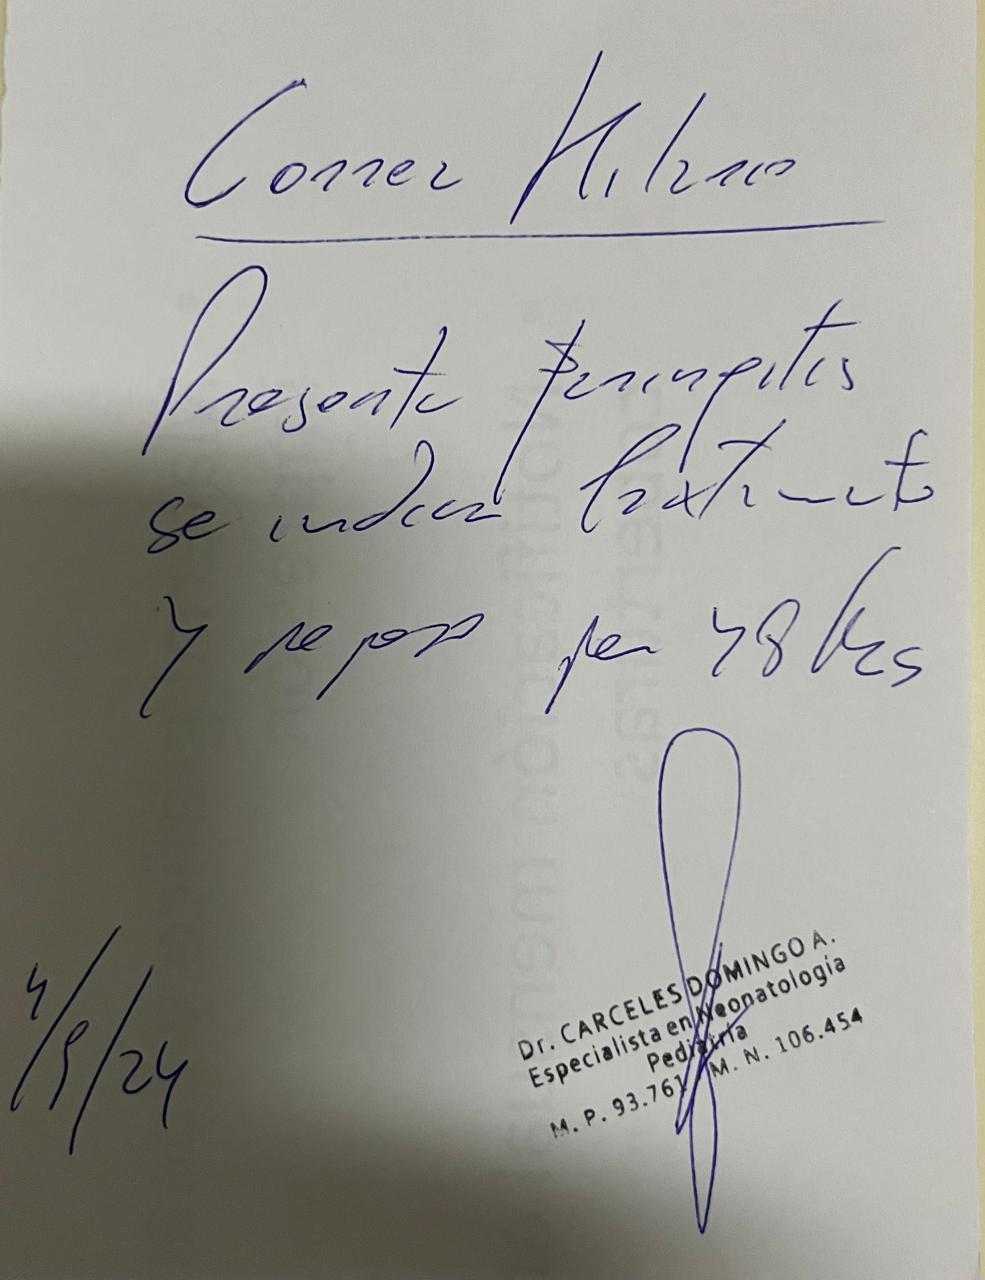 Correa Milano
Presenta faringitis
se indica tratamiento
y reposo por 48 hs
4/9/24
Dr. CARCELES DOMINGO A.
Especialista en Neonatología
Pediatría
M. P. 93.761 / M. N. 106.454